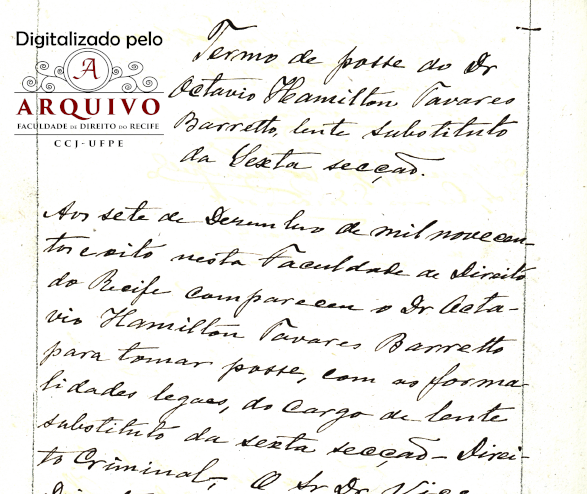 Digitalizado pelo
A
ARQUIVO
FACULDADE DE DIREITO DO RECIFE
CCJ-UFPE
Termo de posse do Dr
Octavio Hamilton Tavares
Barretto, lente substituto
da Sexta secção.
Aos sete de Dezembro de mil novecen-
tos e oito nesta Faculdade de Direito
do Recife compareceu o Dr Octa-
vio Hamilton Tavares Barretto
para tomar posse, com as forma-
lidades legaes, do cargo de lente
substituto da sexta secção - Direi-
to Criminal, O Sr Dr Vice